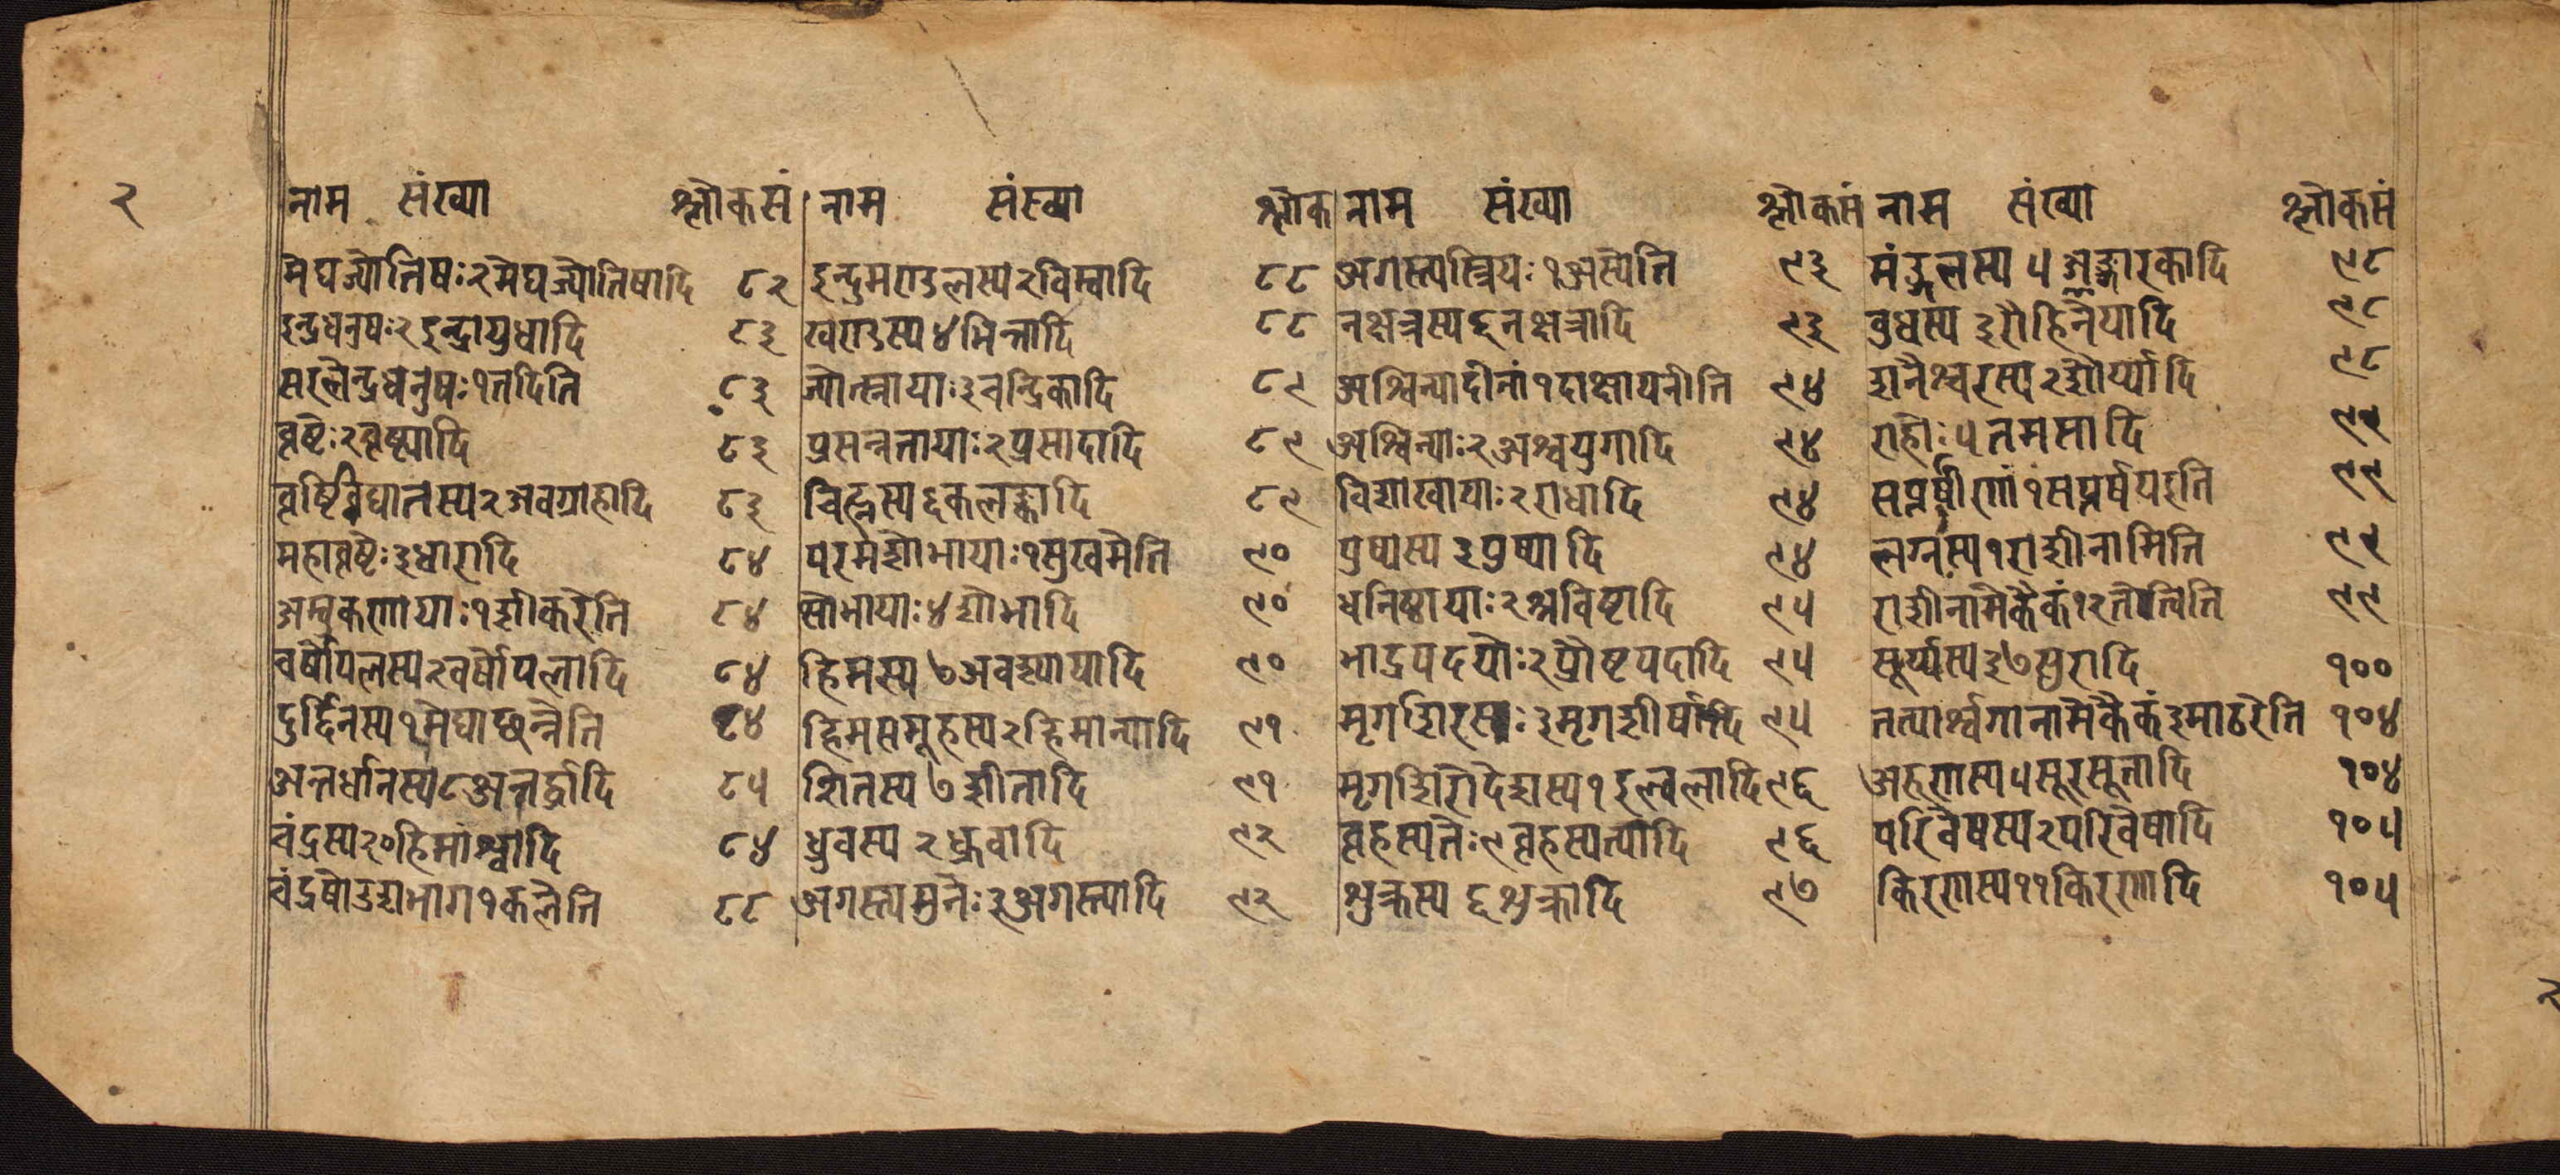 २
नाम संख्या श्लोकसं नाम संख्या श्लोक नाम संख्या श्लोकसं नाम संख्या श्लोकसं
मेघज्योतिषः २ मेघज्योतिषादि ८२ इन्दुमण्डलस्य २ विम्बादि ८८ अगस्त्यस्त्रियः १ अस्येति ९३ मंङ्गलस्य ५ अङ्गारकादि ९८
इन्द्रधनुषः २ इन्द्रायुधादि ८३ खण्डस्य ४ भित्तादि ८८ नक्षत्रस्य ६ नक्षत्रादि ९३ वुधस्य ३ रौहिनेयादि ९८
सरलेन्द्रधनुषः १ तदिति ८३ ज्योत्स्नायाः ३ चन्द्रिकादि ८९ अश्विन्यादीनां १ दाक्षायनीति ९४ शनैश्चरस्य २ शौर्य्यादि ९८
वृष्टेः २ वृष्ट्यादि ८३ प्रसन्नतायाः २ प्रसादादि ८९ अश्विन्याः २ अश्वयुगादि ९४ राहोः ५ तमसादि ९९
वृष्टिविघातस्य २ अवग्राहादि ८३ चिह्नस्य ६ कलङ्कादि ८९ विशाखायाः २ राधादि ९४ सप्तर्षीणां १ सप्तर्षय इति ९९
महावृष्टेः ३ धारादि ८४ परमशोभायाः १ सुखमेति ९० पुष्यस्य ३ पुष्यादि ९४ लग्नस्य १ राशीनामिति ९९
अम्बुकणायाः १ शीकरेति ८४ सोभायाः ४ शोभादि ९० धनिष्ठायाः २ श्रविष्टादि ९५ राशीनामेकैकं १२ तेत्विति ९९
वर्षोपलस्य २ वर्षोपलादि ८४ हिमस्य ७ अवश्यायादि ९० भाद्रपदयोः २ प्रौष्टपदादि ९५ सूर्य्यस्य ३७ सुरादि १००
दुर्द्दिनस्य १ मेघाछन्नेति ८४ हिमसमूहस्य २ हिमान्यादि ९१ मृगशिरसः ३ मृगशीर्षादि ९५ तत्पार्श्वगानामेकैकं ३ माठरेति १०४
अन्तर्धानस्य ८ अन्तर्द्धादि ८५ शितस्य ७ शीतादि ९१ मृगशिरोदेशस्य १ इल्वलादि ९६ अरुणस्य ५ सूरसूतादि १०४
चंद्रस्य २० हिमांश्वादि ८५ ध्रुवस्य २ ध्रुवादि ९२ वृहस्पतेः ९ वृहस्पत्यादि ९६ परिवेषस्य २ परिवेषादि १०५
चंद्रषोडशभाग १ कलेति ८८ अगस्त्यमुनेः ३ अगस्त्यादि ९२ शुक्रस्य ६ शुक्रादि ९७ किरणस्य ११ किरणादि १०५